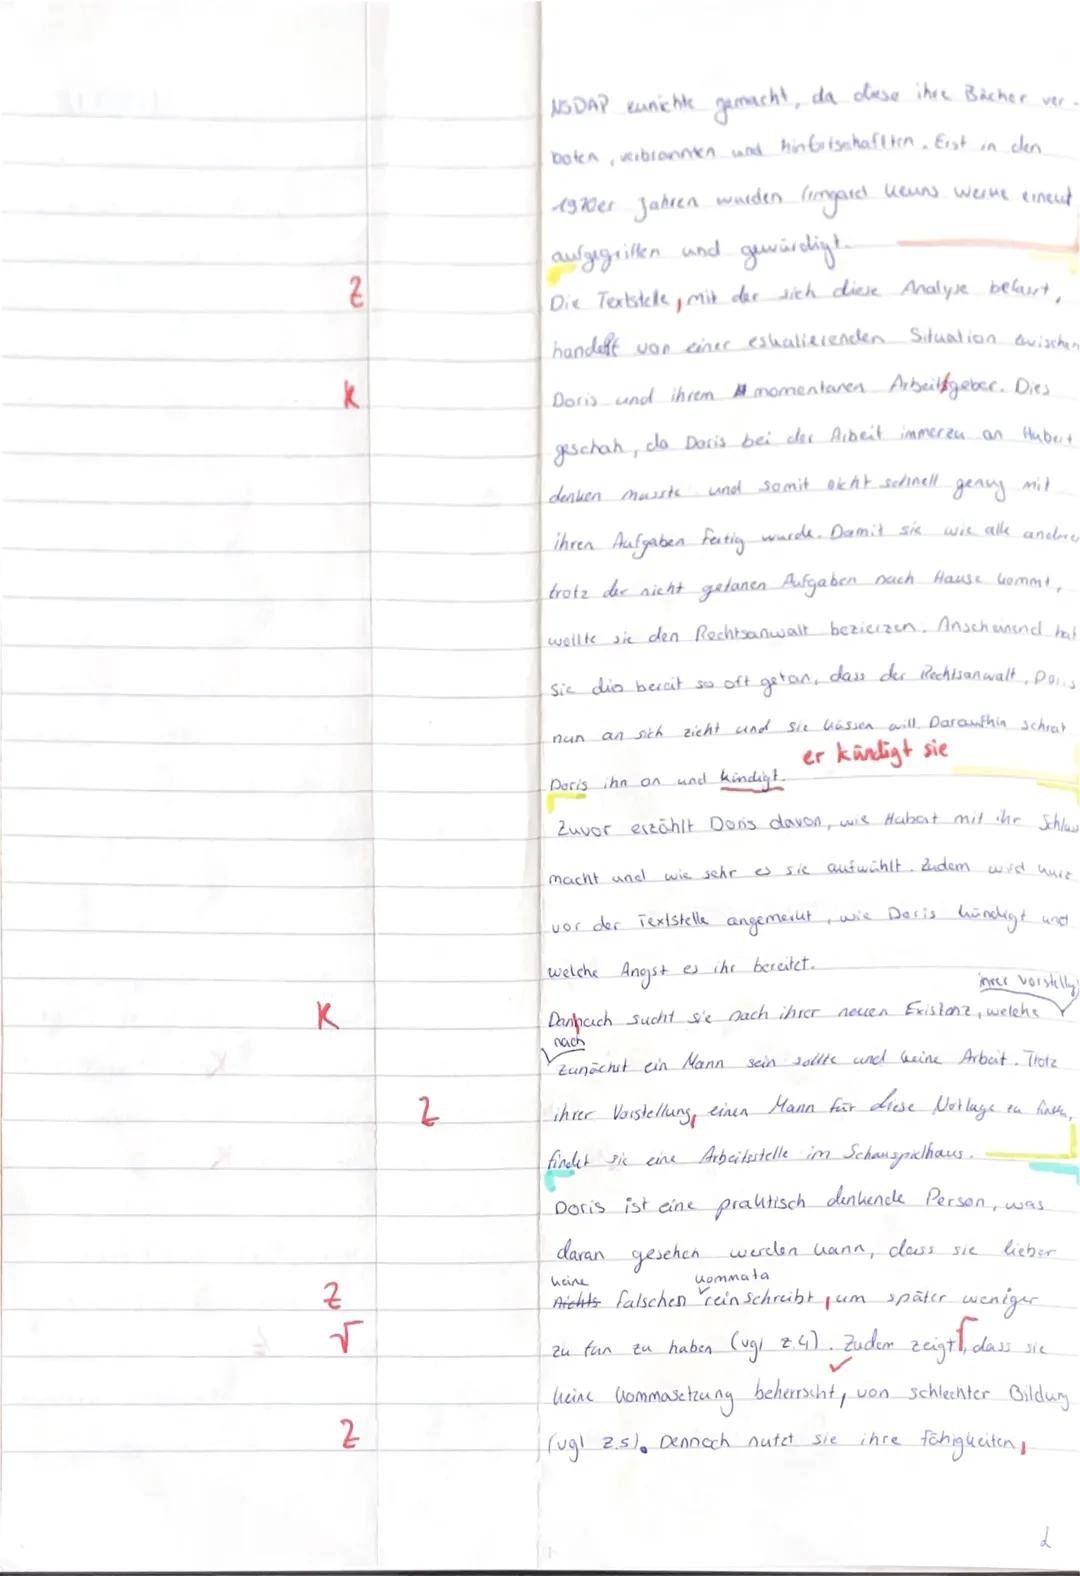 NSDAP zunichte gemacht, da diese ihre Bücher ver-
boten, verbrannten und hinfortschafften. Erst in den
1970er Jahren wurden Irmgard Keuns Werke erneut
aufgegriffen und gewürdigt.
Z Die Textstelle, mit der sich diese Analyse befasst,
handelt von einer eskalierenden Situation zwischen
K Doris und ihrem momentanen Arbeitgeber. Dies
geschah, da Doris bei der Arbeit immerzu an Hubert
denken musste und somit nicht schnell genug mit
ihren Aufgaben fertig wurde. Damit sie wie alle andere
trotz der nicht getanen Aufgaben nach Hause kommt,
wollte sie den Rechtsanwalt bezierzen. Anscheinend hat
sie dies bereit so oft getan, dass der Rechtsanwalt, Doris
nun an sich zieht und sie küssen will. Daraufhin schrat
er kündigt sie
Doris ihn an und kündigt.
Zuvor erzählt Doris davon, wie Hubert mit ihr Schluss
macht und wie sehr es sie aufwühlt. Zudem wird kurz
vor der Textstelle angemerkt, wie Doris kündigt und
welche Angst es ihr bereitet.
ihrer Vorstellg
K Dannach sucht sie nach ihrer neuen Existenz, welche
nach
zunächst ein Mann sein sollte und keine Arbeit. Trotz
Z ihrer Vorstellung, einen Mann für diese Notlage zu finden,
findet sie eine Arbeitsstelle im Schauspielhaus.
Doris ist eine praktisch denkende Person, was
daran gesehen werden kann, dass sie lieber
keine Kommata
Z Nichts falschen reinschreibt, um später weniger
√ zu tun zu haben (vgl Z.4). Zudem zeigt, dass sie
keine Kommasetzung beherrscht, von schlechter Bildung
Z (vgl Z.5). Dennoch nutzt sie ihre fähigkeiten,
2